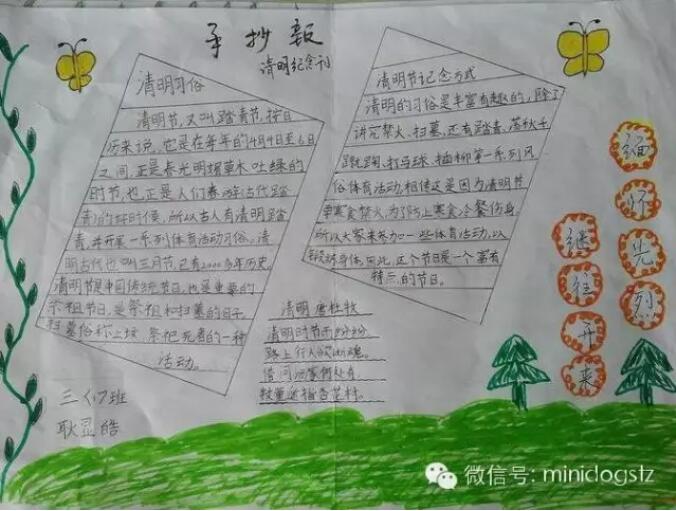 手抄報
清明纪念刊
清明习俗
清明节，又叫踏青节，按日
历来说，它是在每年的4月4日至6日
之间，正是春光明媚草木吐绿的
时节，也正是人们春游古代踏
青的好时候，所以古人有清明踏
青，并开展一系列体育活动习俗。清
明古代也叫三月节，已有2000多年历史
清明节是中国传统节日，也是重要的
祭祖节日，是祭祖和扫墓的日子。
扫墓俗称上坟，祭祀死者的一种
活动。
三（7）班
耿显皓
清明节记念方式
清明的习俗是丰富有趣的，除了
讲究禁火、扫墓，还有踏青、荡秋千、
蹴鞠、打马球、插柳第一系列风
俗体育活动。相传这是因为清明节
要寒食禁火，为了防止寒食冷餐伤身，
所以大家来参加一些体育活动，以
锻炼身体。因此，这个节日是一个富有
特点的节日。
清明 唐杜牧
清明时节雨纷纷
路上行人欲断魂。
借问酒家何处有，
牧童遥指杏花村。
缅怀先烈
继往开来
微信号: minidogstz